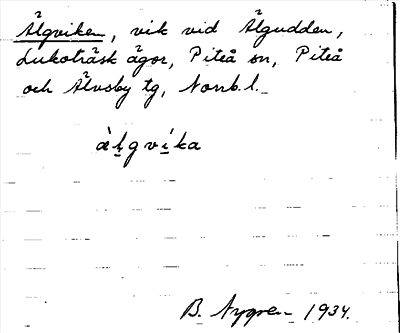 Älgviken, vik vid Älgudden,
Lukoträsk ägor, Piteå sn, Piteå
och Älvsby tg, Norrb. l.
ä̀l̥gvíka
B. Nygren 1934.